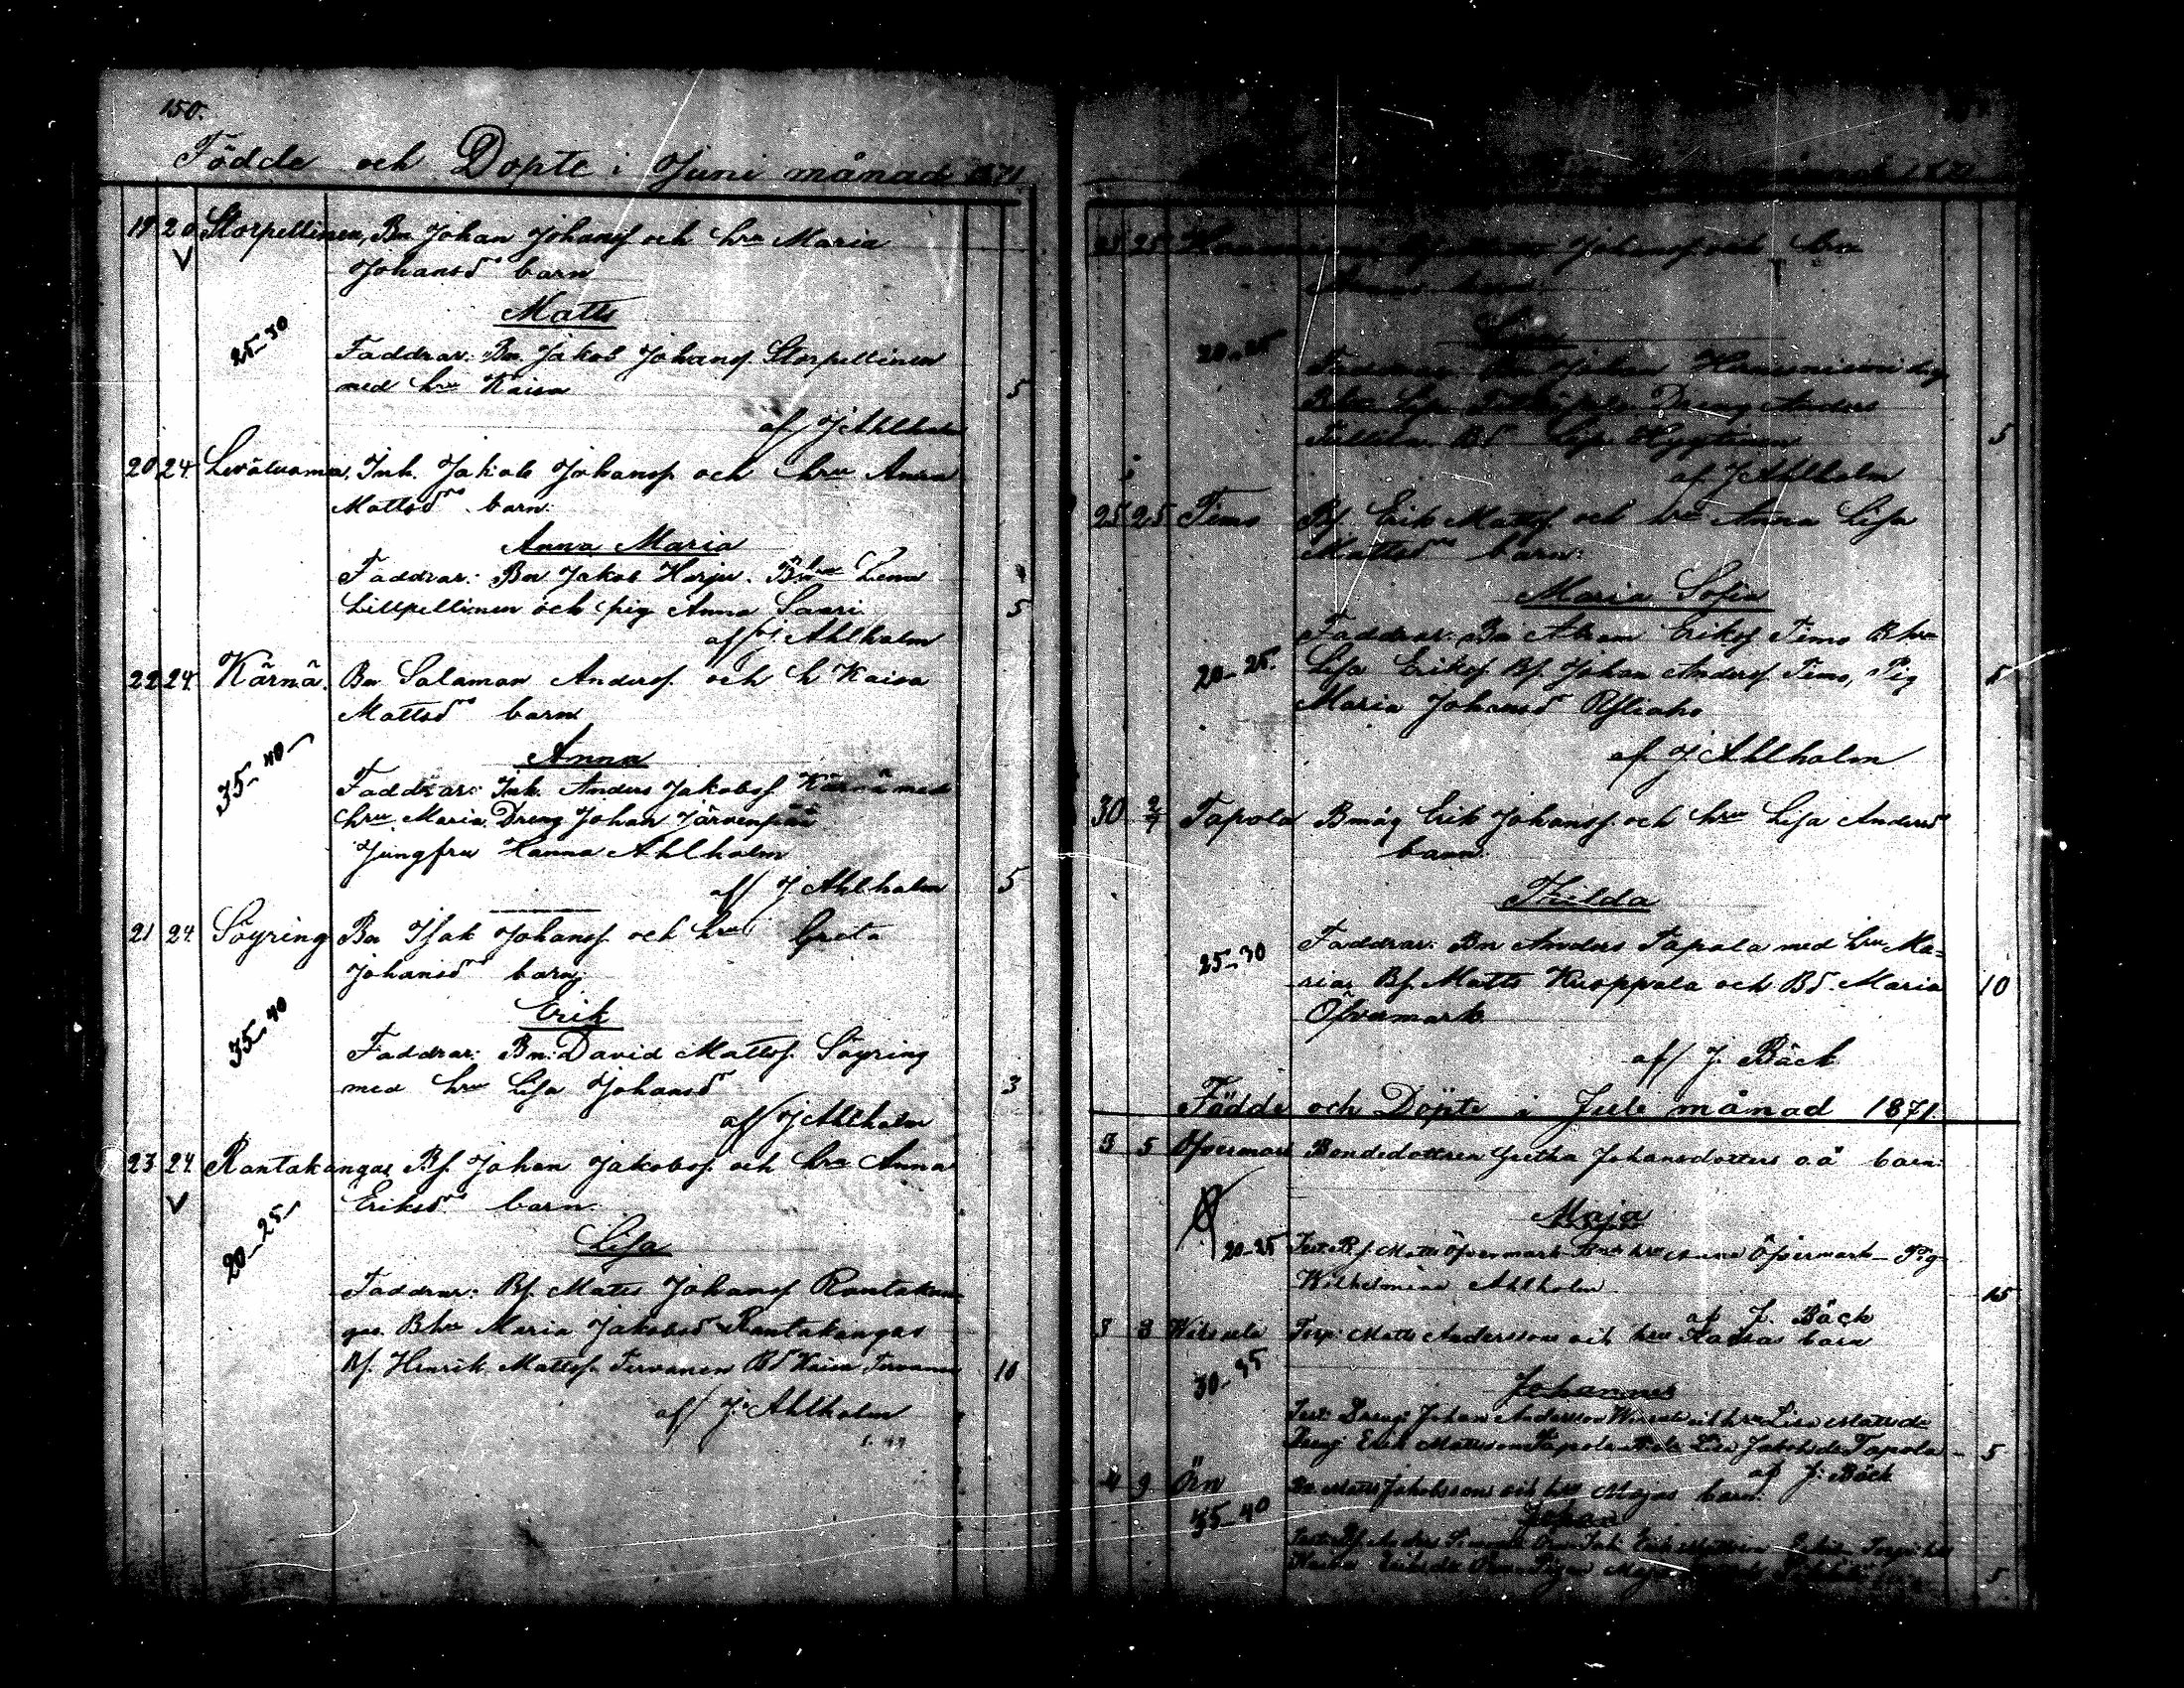 150.
Födde och Döpte i Juni månad 1871
19 20 Storpellinen, Bn Johan Johansf och hru Maria
Johansd barn
Matts
25-30
Faddrar: Bn. Jakob Johansf. Storpellinen
med hru Kaisa 5
af J Ahlholm
20 24 Leväluoma, Inh. Jakob Johansf. och hru Anna
Mattsd barn.
Anna Maria
Faddrar: Bn Jakob Harju. Bhru Lena
Lillpellinen och pig Anna Saari 5
af J. Ahlholm
22 24 Kärnä. Bn Salamon Andersf. och h Kaisa
Mattsd barn
Anna
35-40
Faddrar: Inh. Anders Jakobsf. Kärnä med
hru Maria. Dreng Johan Järvenpää
Jungfru Hanna Ahlholm
af J Ahlholm 5
21 24 Söyring Bn Isak Johansf. och hru Greta
Johansd barn.
Erik
35-40
Faddrar: Bn: David Mattsf. Söyring
med hru Lisa Johansd 3
af J Ahlholm
23 24 Rantakangas Bf. Johan Jakobsf. och hru Anna
Eriksd barn.
Lisa
20-25
Faddrar: Bf. Matts Johansf Rantakan-
gas. Bhru Maria Jakobsd Rantakangas
Bf. Henrik Mattsf. Tervanen Bd Kaisa Tervanen 10
af J. Ahlholm
25 25 Johansf. och hru
barn
20-25
Faddrar: Bn Johan
Dreng Anders
Bd Lisa 5
af J Ahlholm
25 25 Timo Bf. Erik Mattsf. och hru Anna Lisa
Mattsd barn:
Maria Sofia
Faddrar: Bn Abram Eriksf. Timo Bhru
20-25. Lisa Eriksf. Bf. Johan Andersf. Timo, Pig 5
Maria Johansd
af J Ahlholm
30 2/7 Tapola Bmåg Erik Johansf. och hru Lisa Andersd
barn.
Thilda
25-30
Faddrar: Bn Anders Tapola med hru Ma=
ria, Bf. Matts Kuoppala och Bd. Maria 10
Öfvermark.
af J. Bäck
Födde och Döpte i Juli månad 1871.
3 5 Öfvermark Bondedottren Gretha Johansdotters oä barn:
Maja
20-25 Test: Bf. Matts Öfvermark Bns hru Anna Öfvermark - Pig
Wilhelmina Ahlholm 15
af J. Bäck
3 8 Torp: Matts Andersson och hru Kaisas barn
30-35
Johannes
Test: Dreng: Johan Andersson och hru Lisa Mattsdr
Dreng Erik Mattsson Tapola Lisa Jakobsdr Tapola - 5
af J. Bäck
4 9 Örn Bn Matts Jakobsson och hru Majas barn.
35-40 Johan
Test: Bf. Anders Inh Erik Mattsson
Eriksdr Örn Pigan Maja 5